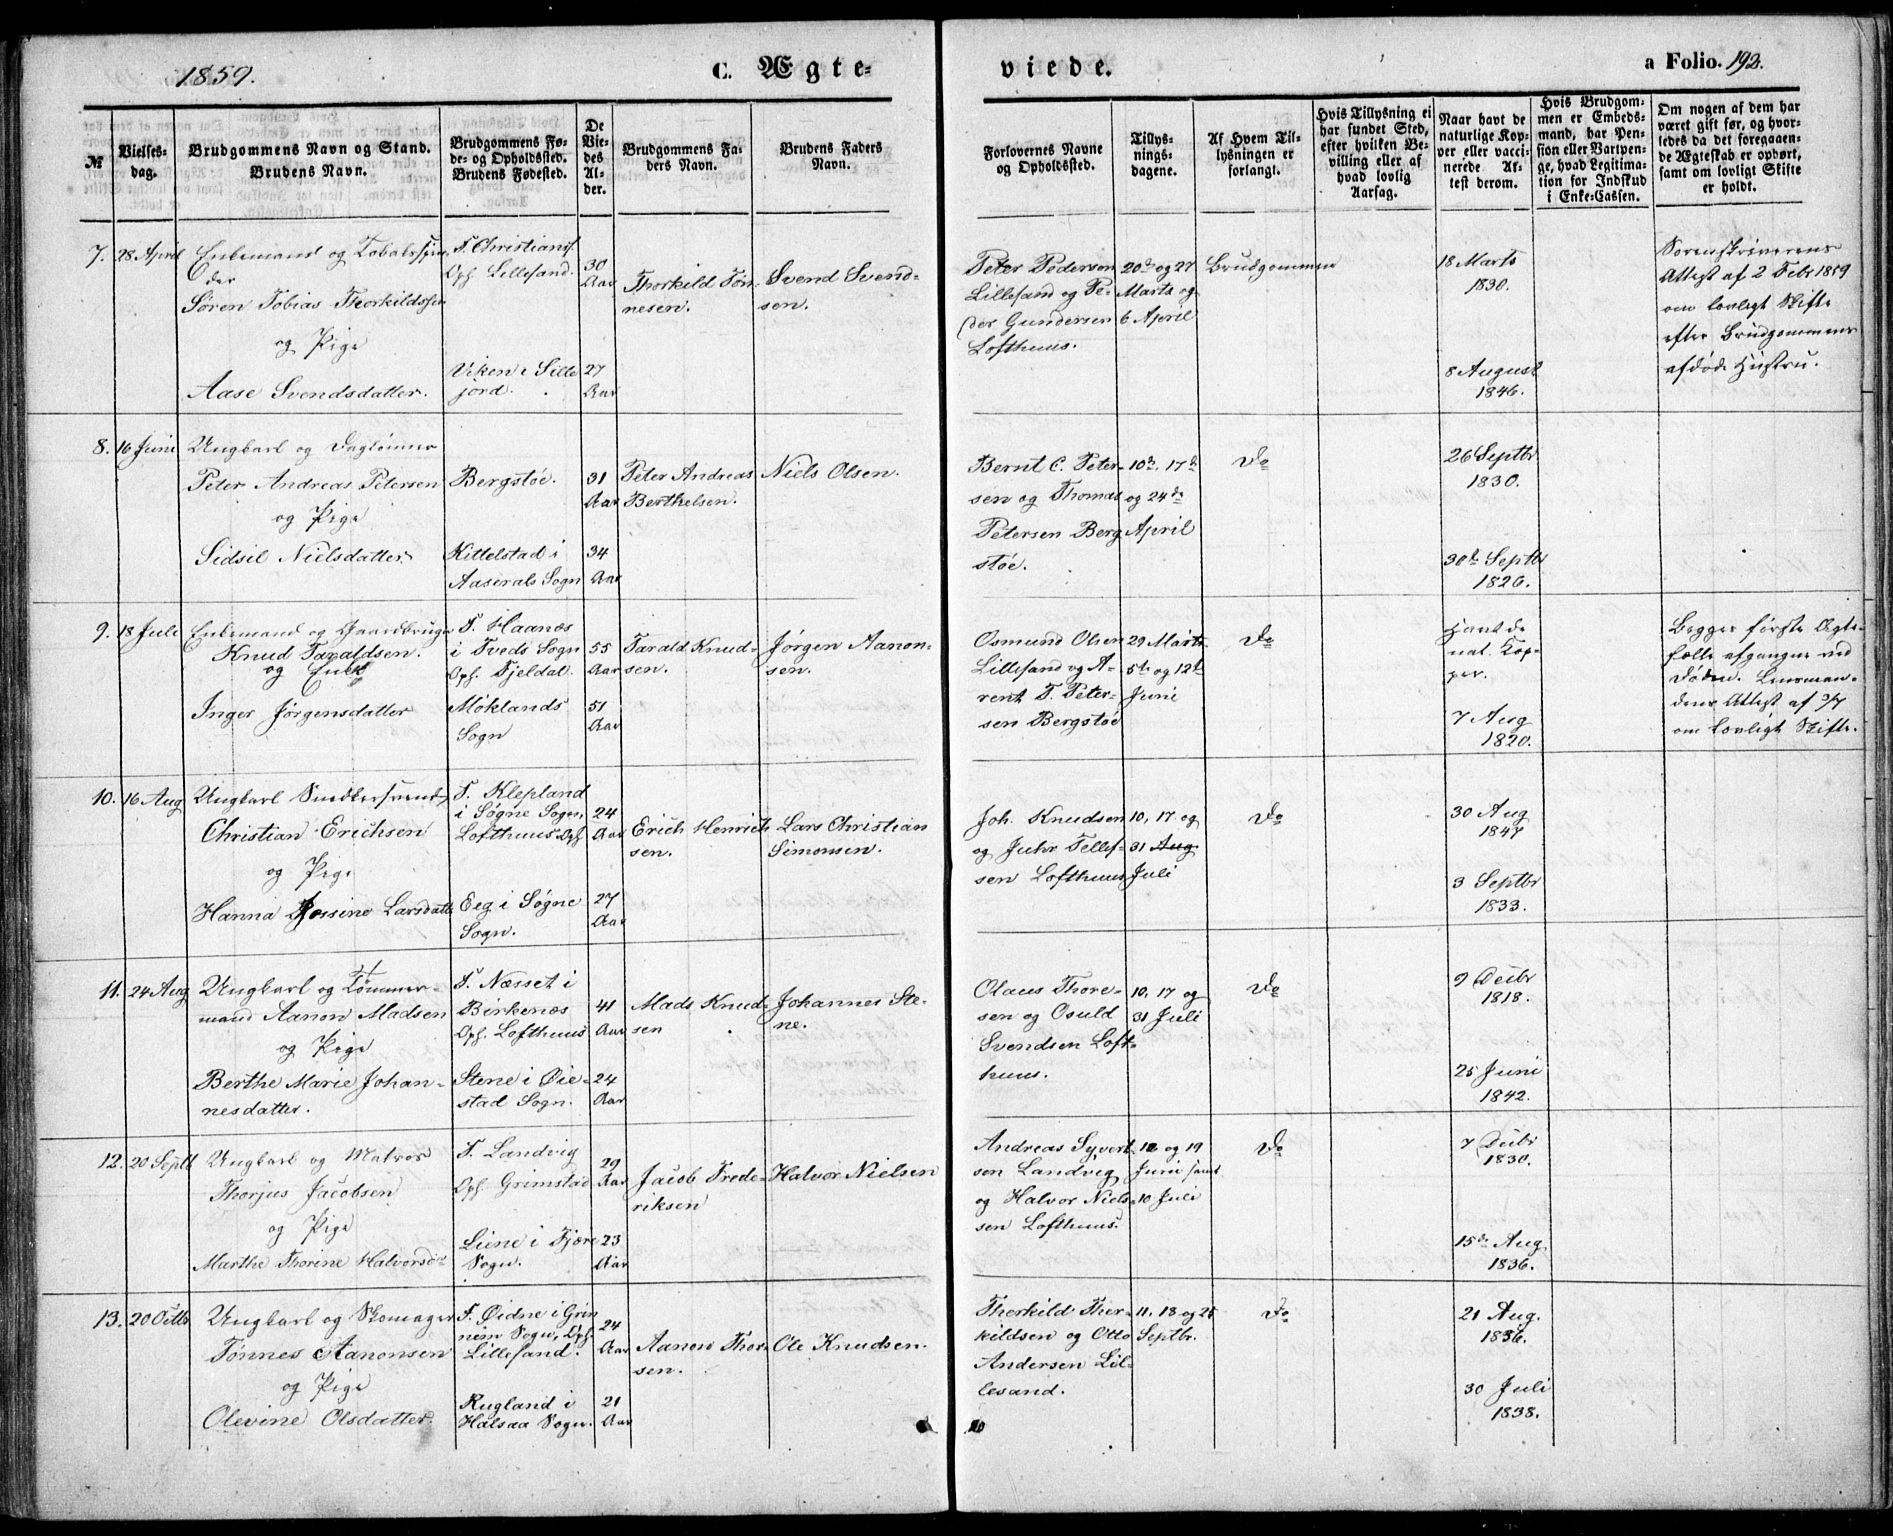 1859.
C. Ægte-
viede.
a Folio. 192.
№
Vielses-
dag.
Brudgommens Navn og Stand.
Brudens Navn.
Brudgommens Fø-
de- og Opholdssted.
Brudens Fødested.
De
Vie-
des
Al-
der.
Brudgommens Fa-
ders Navn.
Brudens Faders
Navn.
Forlovernes Navne
og Opholdssted.
Tillys-
nings-
dagene.
Af Hvem Til-
lysningen er
forlangt.
Hvis Tillysning ei
har fundet Sted,
efter hvilken Be-
villing eller af
hvad lovlig
Aarsag.
Naar havt de
naturlige Kop-
per eller vacci-
nerede At-
test derom.
Hvis Brudgom-
men er Embeds-
mand, har Pen-
sion eller Vartpen-
ge, hvad Legitima-
tion for Indskud
i Enke-Cassen.
Om nogen af dem har
været gift før, og hvor-
ledes da det foregaaen-
de Ægteskab er ophørt,
samt om lovligt Skifte
er holdt.
7. 28 April
Enkemand og Tobaksspin-
der
Søren Tobias Thorkildsen
og Pige
Aase Svendsdatter.
F. Christians.
Oph. Lillesand.
Viken i Sille
jord.
30
Aar
27
Aar
Thorkild Tøn-
nesen.
Svend Svend-
sen.
Peter Pedersen
Lillesand og Pe-
der Gundersen
Lofthuus.
20de og 27
Marts og
6 April
Brudgommen
18 Marts
1830.
8 August
1846.
Sorenskriverens
Attest af 2 Febr 1859
om lovligt Skifte
efter Brudgommens
afdøde Hustru.
8. 16 Juni
Ungkarl og Daglønner
Peter Andreas Petersen
og Pige
Sidsil Nielsdatter
Bergstøe.
Kittelstad i
Aaserals Sogn
31
Aar
34
Aar
Peter Andreas
Berthelsen.
Niels Olsen.
Bernt C. Peter-
sen og Thomas
Petersen Berg
støe.
10de, 17de
og 24de
April
Do
26 Septbr
1830.
30de Septbr
1826.
9. 18 Juli
Enkemand og Gaardbruger
Knud Taraldsen.
og Enke
Inger Jørgensdatter
F. Haanes
i Tveds Sogn
Oph. Fjeldal.
Møklands
Sogn
55
Aar
51
Aar
Tarald Knud-
sen.
Jørgen Aanon-
sen.
Osmund Olsen
Lillesand og A-
rent T. Peter-
sen Bergstøe
29 Marts
5te og 12te
Juni
Do
Havt de
nat. Kop-
per.
7 Aug
1820.
Begges første Ægte-
fælle afgangne ved
Døden. Lensman-
dens Attest af 3/7
om lovligt Skifte.
10. 16 Aug
Ungkarl Snedkersvend
Christian Erichsen
og Pige
Hanna Jossine Larsdatt
F. Klepland
i Søgne Sogn,
Lofthuus Oph.
Eeg i Søgne
Sogn.
24
Aar
27
Aar
Erich Henrich
sen.
Lars Christian
Simonsen.
Joh. Knudsen
og Juhr Tellef-
sen Lofthuus
10, 17 og
31 Aug
Juli
Do
30 Aug
1847
3 Septbr
1833.
11. 24 Aug
Ungkarl og Tømmer-
mand Aanon Madsen
og Pige
Berthe Marie Johan-
nesdatter.
F. Næsset i
Birkenæs
Oph. Lofthuus
Stene i Øie-
stad Sogn.
41
Aar
24
Aar
Mads Knud-
sen
Johannes Ste-
ne.
Olaus Thore-
sen og Osuld
Svendsen Loft-
huus.
10, 17 og
31 Juli
Do
9 Decbr
1818.
25 Juni
1842.
12. 20 Septb
Ungkarl og Matros
Thorjus Jacobsen
og Pige
Marthe Thorine Halvorsd
F. Landvig
Oph. Grimstad
Liene i Fjære
Sogn.
29
Aar
23
Aar
Jacob Frede-
riksen
Halvor Nielsen
Andreas Syvert
sen Landvig
og Halvor Niels
sen Lofthuus.
12 og 19
Juni samt
10 Juli
Do
7 Decbr
1830.
15de Aug
1836.
13. 20 Octbr
Ungkarl og Skomager
Tønnes Aanonsen
og Pige
Olevine Olsdatter
F. Øidne i Grin
nem Sogn, Oph.
Lillesand.
Rugland i
Halsaa Sogn.
24
Aar
21
Aar
Aanon Thor-
sen.
Ole Knudsen.
Thorkild Thor-
kildsen og Otto
Andersen Lil-
lesand.
11, 18 og 25
Septbr.
Do
21 Aug.
1836.
30 Juli
1838.